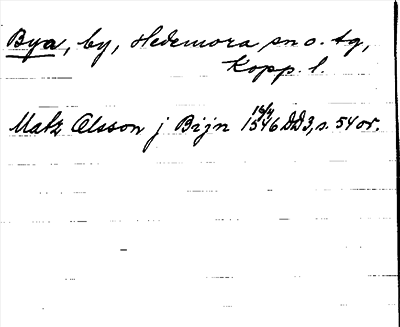 Bya, by, Hedemora sn o. tg,
Kopp. l.
Matz Olsson j Bijn 16/4 1546 DD3, s. 54 or.